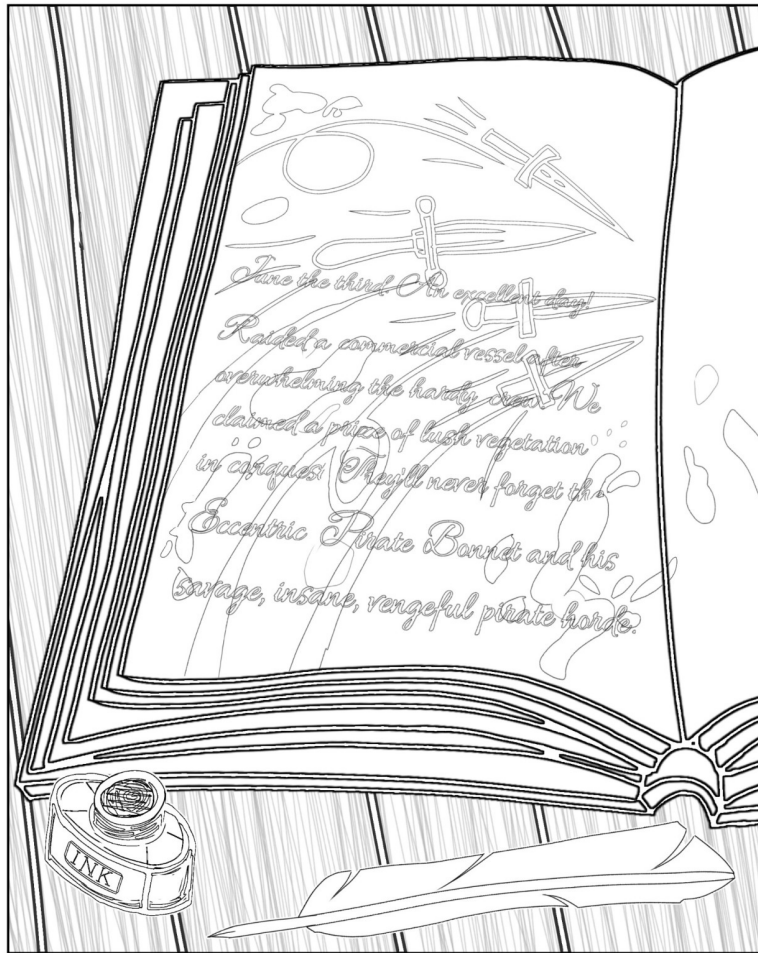 June the third. An excellent day!
Raided a commercial vessel after
overwhelming the hardy crew. We
claimed a prize of lush vegetation
in conquest. They'll never forget the
Eccentric Pirate Bonnet and his
savage, insane, vengeful pirate horde.
INK